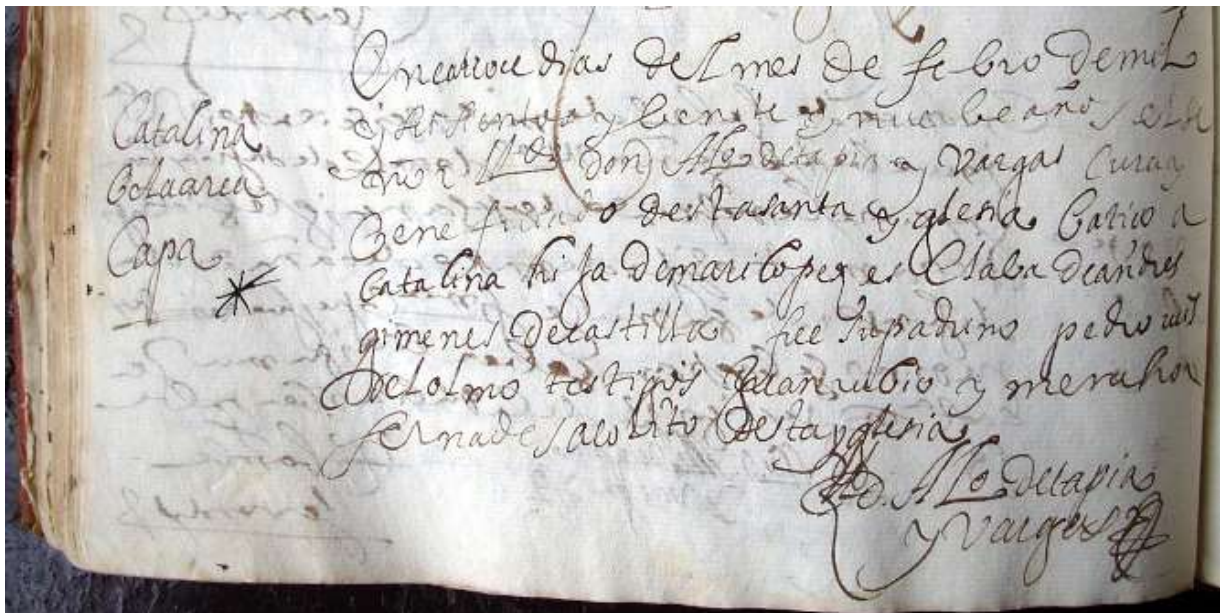 Catalina
esclava
Capa
En catorce dias del mes de febro de mil
y seisientos y beinte y nuebe años el se
ñor Ldo don Alo de tapia y Vargas Cura y
Beneficiado desta santa yglesia batico a
Catalina hija de mari lopez esclaba de andres
gimenes de castilla fue su padrino pedro ruis
del olmo testigos Juan rubio y
fernades acolito desta yglesia
Ldo. Alo de tapia
y Vargas